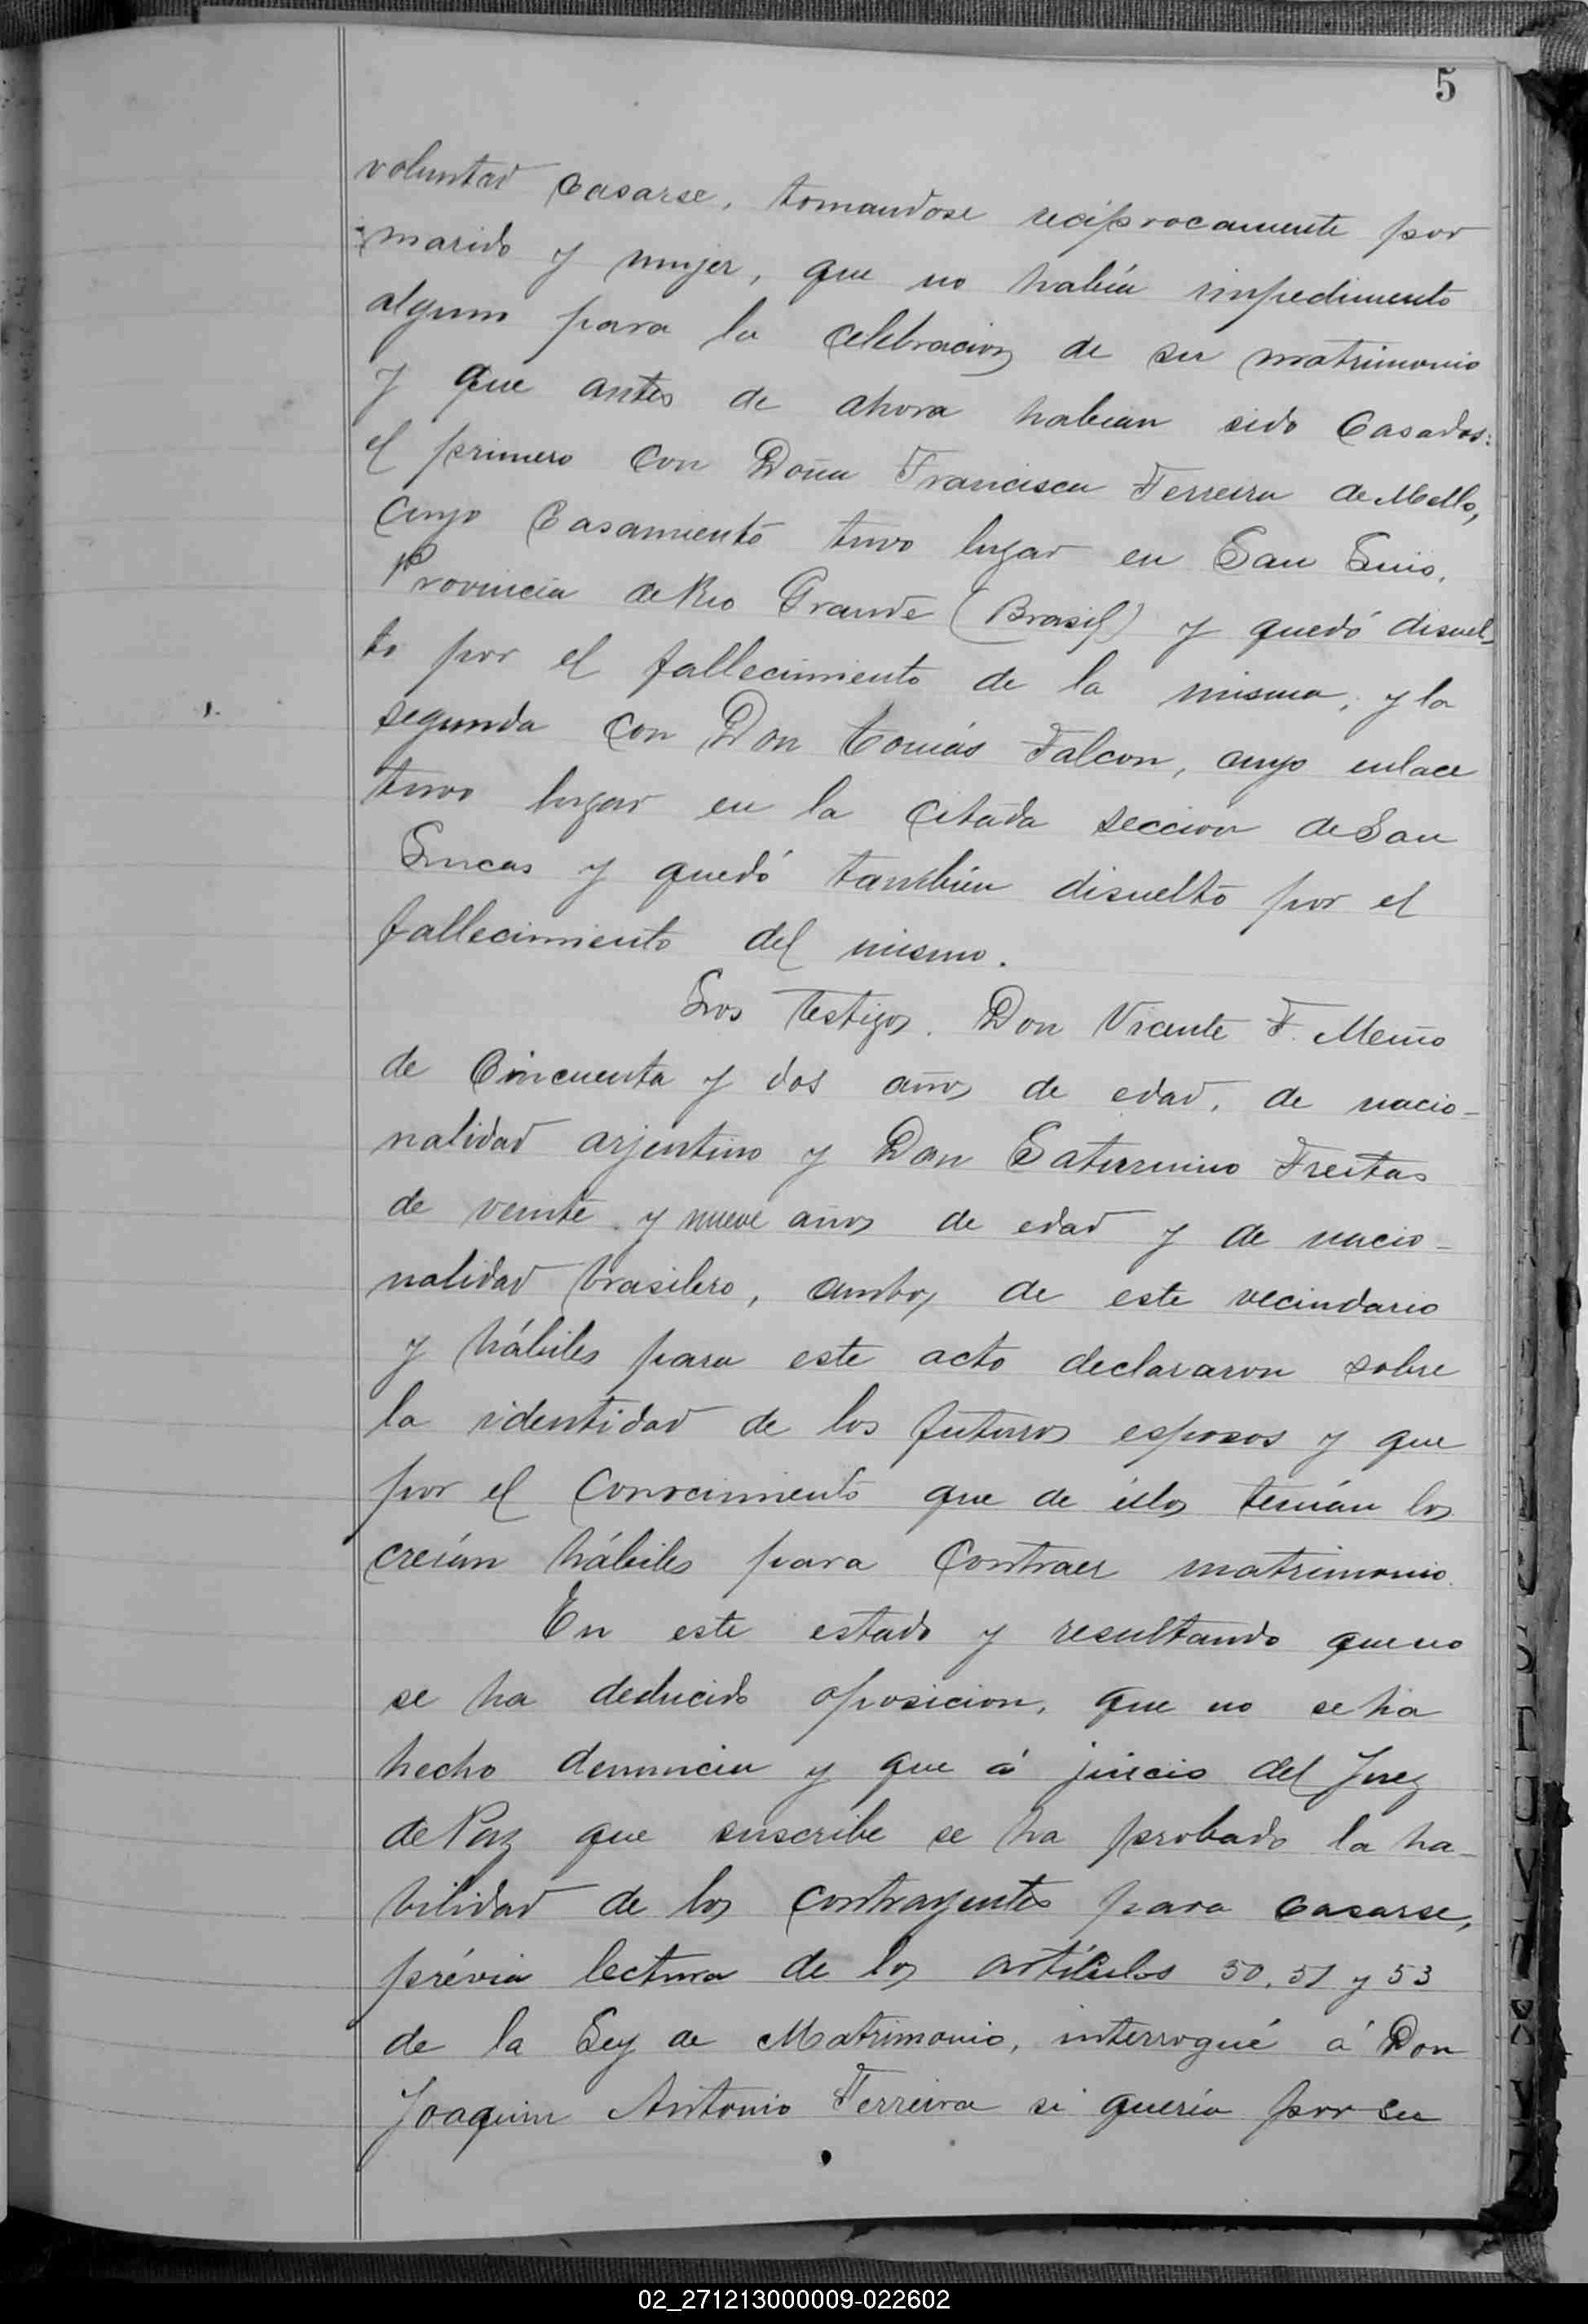 5
voluntad casarse, tomandose reciprocamente por
marido y mujer, que no había impedimento
alguno para la celebracion de su matrimonio
y que antes de ahora habian sido casados:
el primero con Doña Francisca Ferreira de Mello,
cuyo casamiento tuvo lugar en San Luis,
Provincia de Rio Grande (Brasil) y quedó disuel-
to por el fallecimiento de la misma; y la
segunda con Don Tomás Falcon, cuyo enlace
tuvo lugar en la citada seccion de San
Lucas y quedó tambien disuelto por el
fallecimiento del mismo.
Los testigos. Don Vicente F.
de cincuenta y dos años de edad, de nacio-
nalidad arjentino y Don Saturnino Freitas
de veinte y nueve años de edad y de nacio-
nalidad brasilero, ambos de este vecindario
y hábiles para este acto declararon sobre
la identidad de los futuros esposos y que
por el conocimiento que de éllos tenían los
creían hábiles para contraer matrimonio.
En este estado y resultando que no
se ha deducido oposicion, que no se ha
hecho denuncia y que á juicio del Juez
de Paz que suscribe se ha probado la ha-
bilidad de los contrayentes para casarse,
prévia lectura de los artículos 50, 51 y 53
de la Ley de Matrimonio, interrogué á Don
Joaquim Antonio Ferreira si quería por su
02_271213000009-022602